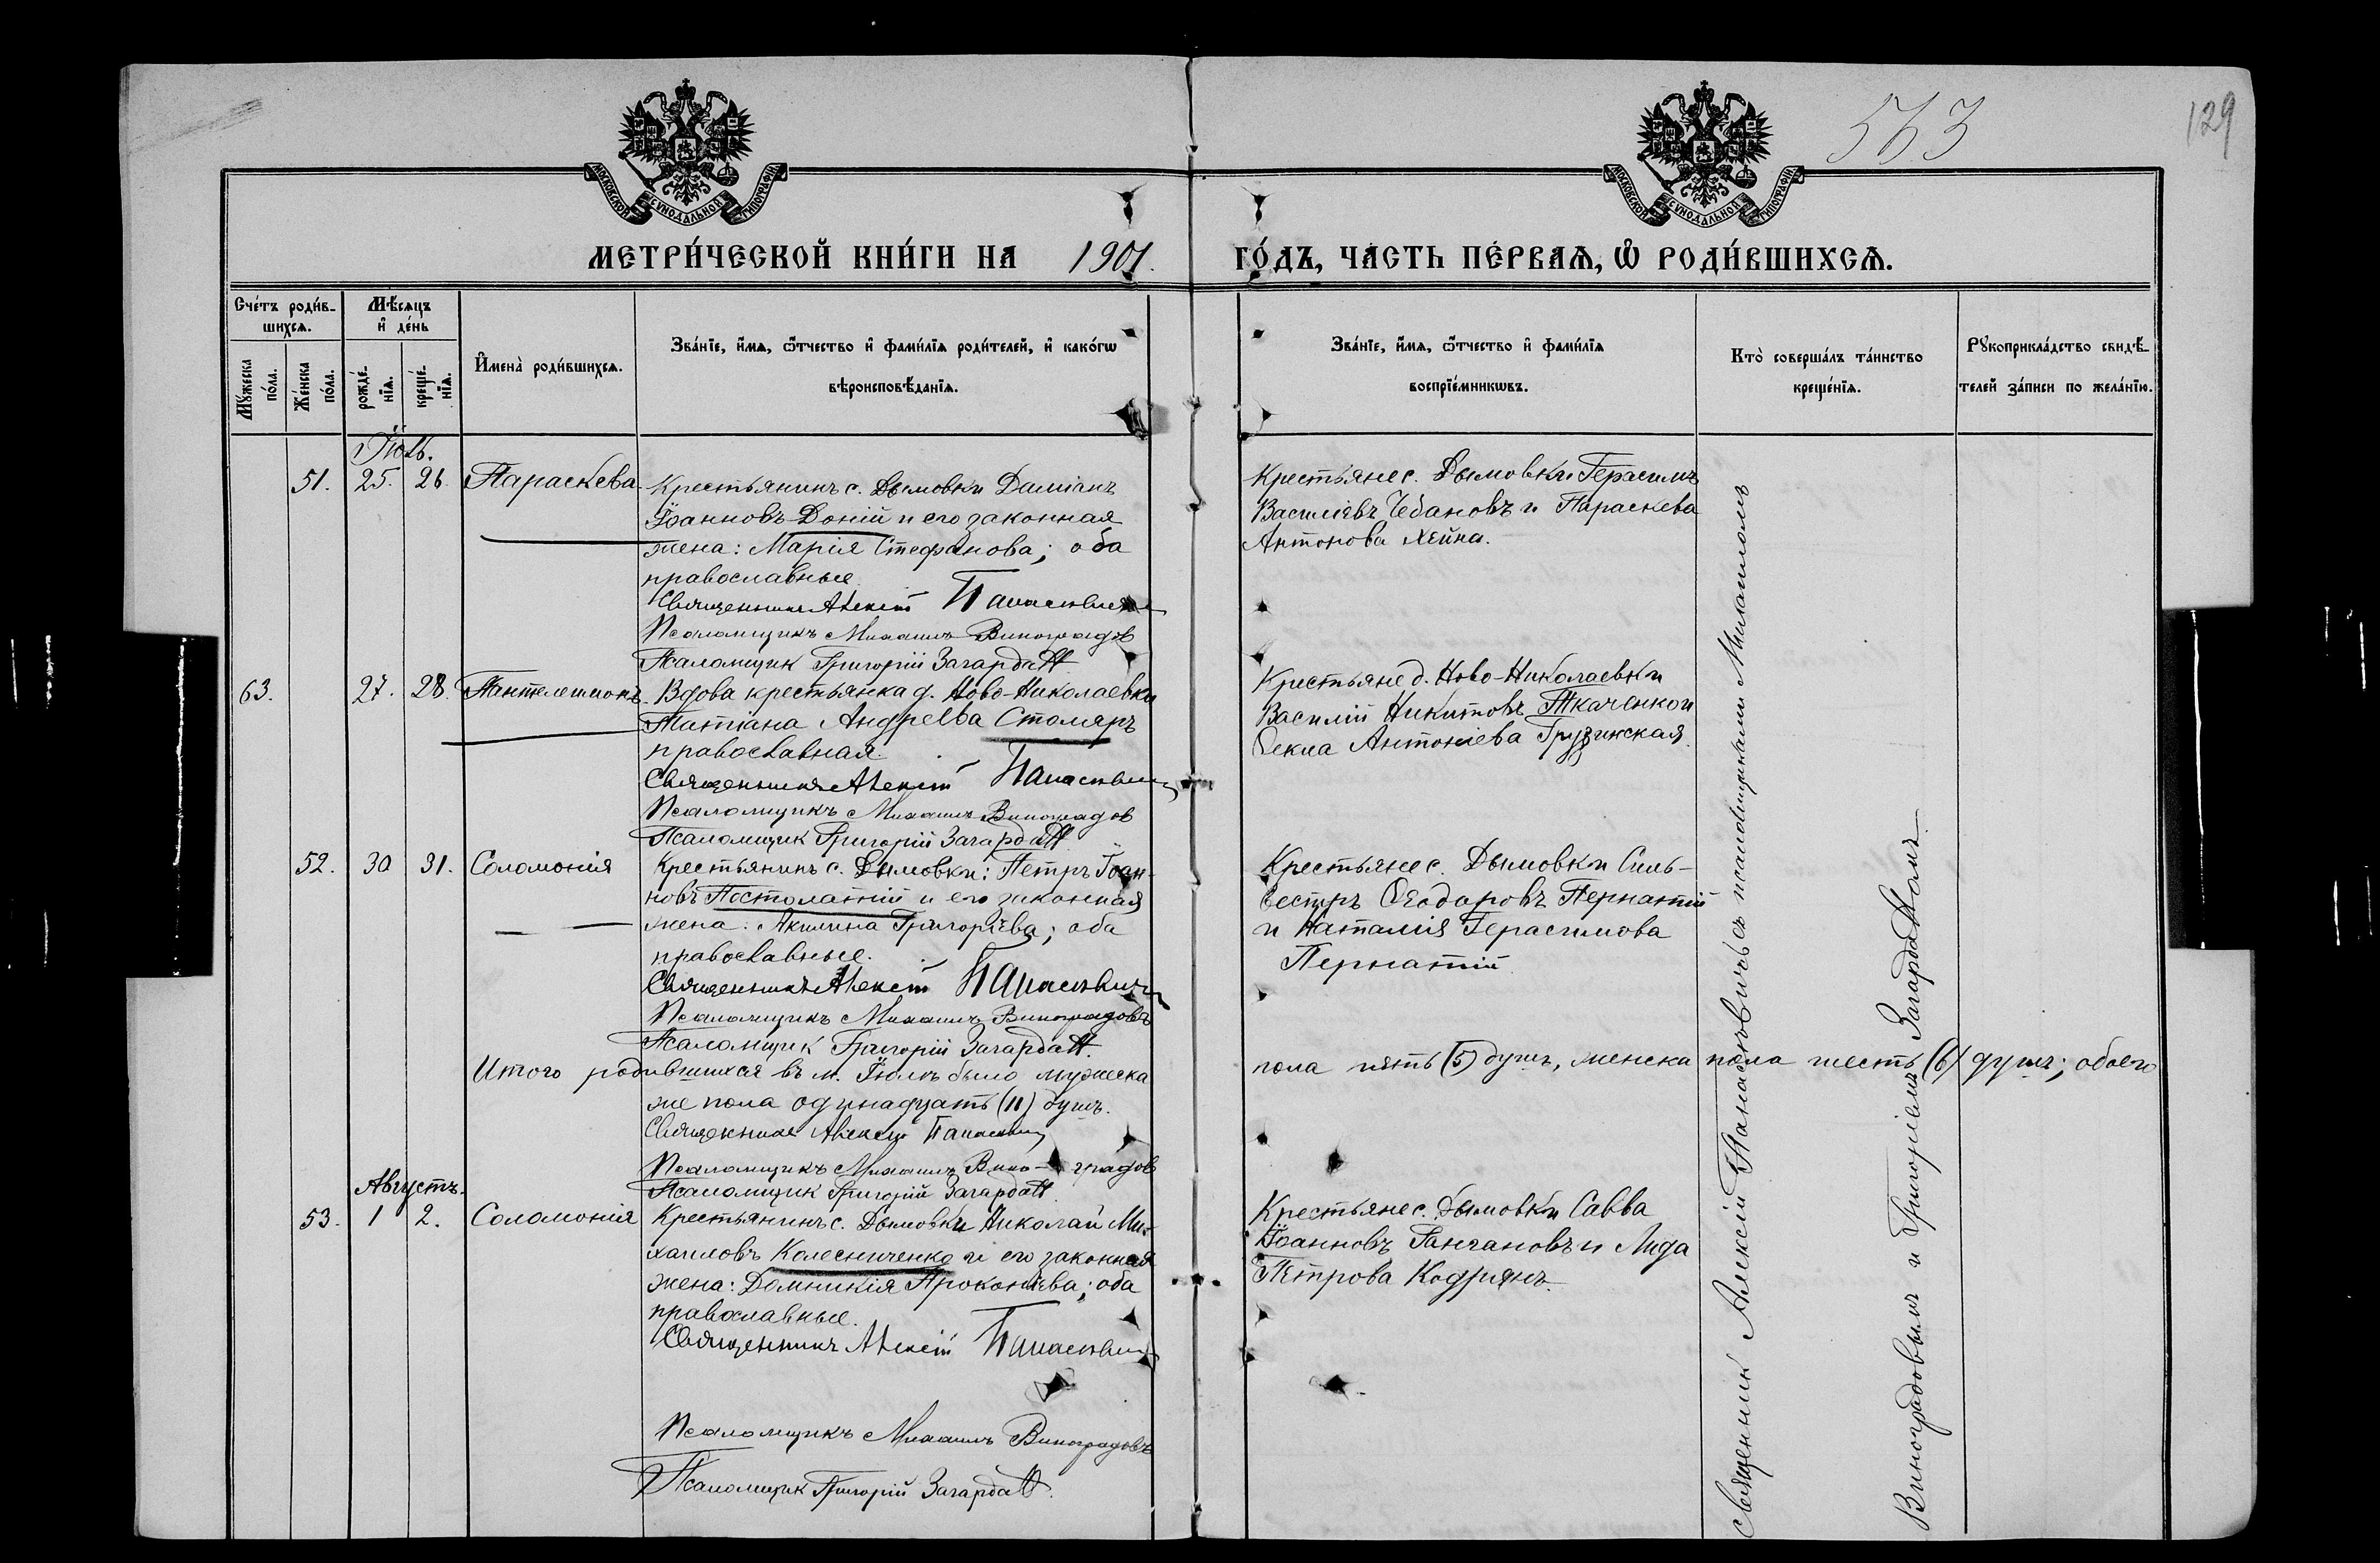 563
129
МОСКОВСКОЙ СѴНОДАЛЬНОЙ ТИПОГРАФІИ
МОСКОВСКОЙ СѴНОДАЛЬНОЙ ТИПОГРАФІИ
МЕТРИ́ЧЕСКОЙ КНИ́ГИ НА 1901. ГО́ДЪ, ЧА́СТЬ ПЕ́РВАѦ, Ѡ҆ РОДИ́ВШИХСѦ.
Сче́тъ роди́в-
шихсѧ.
Мꙋ́жеска
по́ла.
Же́нска
по́ла.
Мѣ́сѧцъ
и҆ де́нь
рожде́-
нїѧ.
креще́-
нїѧ.
И҆мена̀ роди́вшихсѧ.
Зва́нїе, и҆́мѧ, ѻ҆́тчество и҆ фами́лїѧ роди́телей, и҆ како́гѡ
вѣроисповѣ́данїѧ.
Зва́нїе, и҆́мѧ, ѻ҆́тчество и҆ фами́лїѧ
воспрїе́мникѡвъ.
Кто̀ соверша́лъ та́инство
креще́нїѧ.
Рꙋкоприкла́дство свидѣ́-
телей за́писи по жела́нїю.
Іюль.
51. 25. 26. Параскева
Крестьянинъ с. Дымовки Даміанъ
Іоанновъ Доній и его законная
жена: Марія Стефанова; оба
православные.
Священникъ Алексій Панасевичъ
Псаломщикъ Михаилъ Виноградов
Псаломщик Григорій Загардатй
Крестьяне с. Дымовки Герасимъ
Василіевъ Чебановъ и Параскева
Антонова Хейна.
63. 27. 28. Пантелеимонъ
Вдова крестьянка д. Ново-Николаевки
Татіана Андреева Столяръ
православная.
Священникъ Алексій Панасевичъ
Псаломщикъ Михаилъ Виноградов
Псаломщик Григорій Загардатй
Крестьяне д. Ново-Николаевки
Василій Никитовъ Ткаченко и
Ѳекла Антоніева Грузинская.
52. 30 31. Соломонія
Крестьянинъ с. Дымовки: Петръ Іоан-
новъ Постолатій и его законная
жена: Акилина Григоріева; оба
православные.
Священникъ Алексій Панасевичъ
Псаломщикъ Михаилъ Виноградовъ
Псаломщик Григорій Загардатй.
Крестьяне с. Дымовки Силь-
вестръ Ѳеодоровъ Пернатій
и Наталія Герасимова
Пернатій
Итого родившихся въ м. Іюлѣ было мужеска пола пять (5) душъ, женска пола шесть (6) душъ; обоего
же пола одинадцать (11) душъ.
Священникъ Алексій Панасевичъ
Псаломщикъ Михаилъ Вино-градов
Псаломщик Григорій Загардатй.
Августъ.
53. 1 2. Соломонія
Крестьянинъ с. Дымовки Николай Ми-
хаиловъ Колесниченко и его законная
жена: Домникія Прокопіева; оба
православные.
Священникъ Алексій Панасевичъ
Псаломщикъ Михаилъ Виноградовъ
Псаломщик Григорій Загардатй.
Крестьяне с. Дымовки Савва
Іоанновъ Ганчановъ и Лида
Петрова Кодрянъ.
Священник Алексій Панасевичъ съ псаломщиками Михаиломъ
Виноградовымъ и Григоріемъ